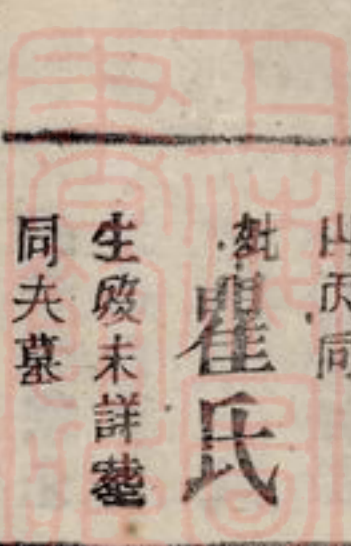 妣瞿氏
生歿未詳塟
同夫墓